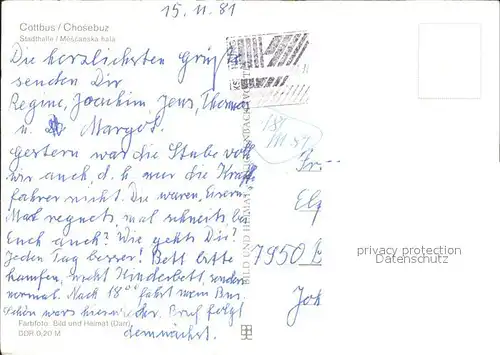 15.11.81
Cottbus / Chośebuz
Stadthalle / Měšćanska hala
Die herzlichsten Grüße
senden Dir
Regine, Joachim, Jens, Thomas
u. Margot.
Gestern war die Stube voll
wir auch, d. h. nur die Kraft-
fahrer nicht. Die waren
Mal regnets mal schneits, bei
Euch auch? Wie gehts Dir?
Jeden Tag besser! Bett bitte
kaufen, nicht Kinderbett, sondern
normal. Nach 18 00 fährt mein Bus.
Schön wars hier. Brief folgt
demnächst.
Farbfoto: Bild und Heimat (Darr)
DDR 0,20 M
BILD UND HEIMAT REICHENBACH (VOGTL)
7950
privacy protection
Datenschutz